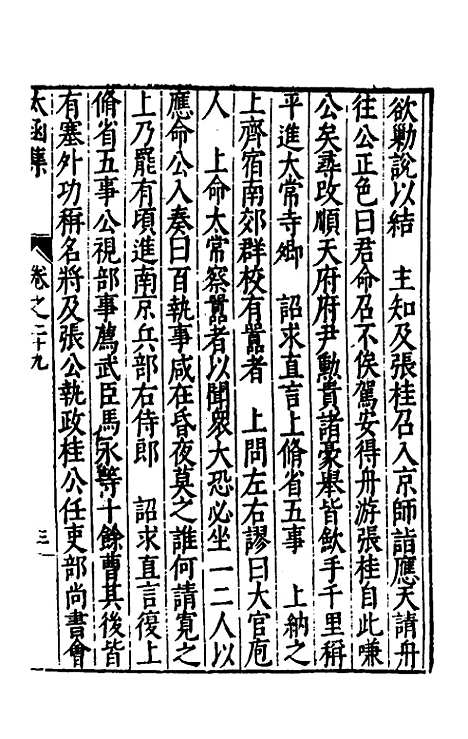 欲勦說以結　主知及張桂召入京師詣應天請舟
往公正色曰君命召不俟駕安得舟游張桂自此嗛
公矣尋改順天府府尹勳貴諸豪舉皆歛手千里稱
平進太常寺卿　詔求直言上脩省五事　上納之
上齊宿南郊群校有嚚者　上問左右謬曰大官庖
人　上命太常察嚚者以聞衆大恐必坐一二人以
應命公入奏曰百執事咸在昏夜莫之誰何請寬之
上乃罷有頃進南京兵部右侍郎　詔求直言復上
脩省五事公視部事薦武臣馬永等十餘曹其後皆
有塞外功稱名將及張公執政桂公任吏部尚書會
太函集　卷之二十九　三